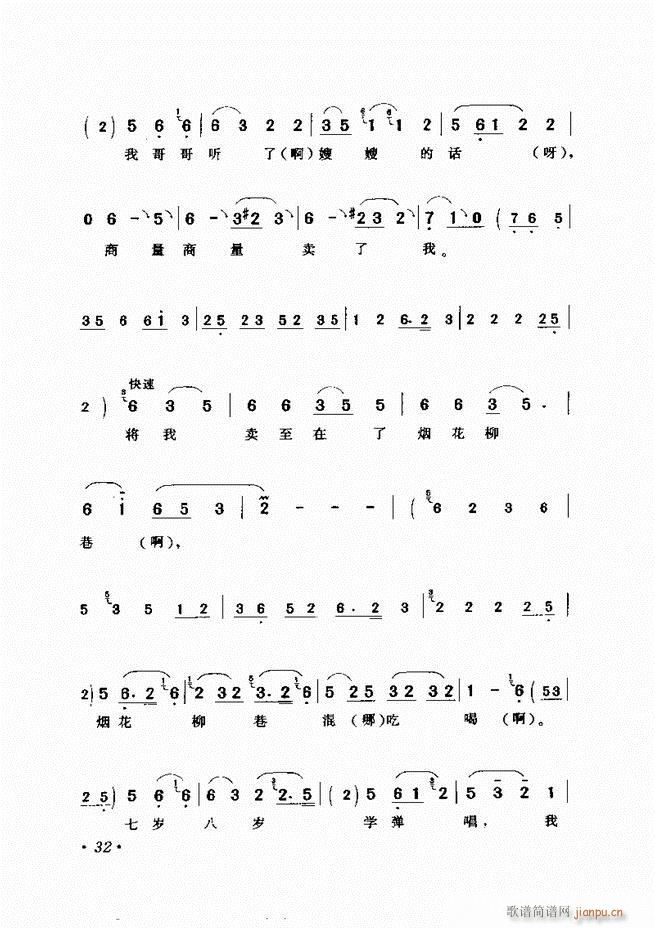 (2) 5 6 6 | 6 3 2 2 | 3 5 1 1 2 | 5 6 1 2 2 |
我哥哥听 了(啊)嫂 嫂 的话 (呀),
0 6 - 5 | 6 - 3 #2 3 | 6 - #2 3 2 | 7 1 0 (7 6 5 |
商 量 商 量 卖 了 我。
3 5 6 6 1 3 | 2 5 2 3 5 2 3 5 | 1 2 6. 2 3 | 2 2 2 2 5 |
快速
2) 6 3 5 | 6 6 3 5 5 | 6 6 3 5. |
将我 卖至在 了 烟花柳
6 1 6 5 3 | 2 - - - | ( 6 2 3 6 |
巷 (啊),
5 3 5 1 2 | 3 6 5 2 6. 2 3 | 2 2 2 2 5 |
2) 5 6. 2 6 | 2 3 2 3. 2 6 | 5 2 5 3 2 3 2 | 1 - 6 (5 3 |
烟花 柳 巷 混 (哪)吃 喝 (啊)。
2 5) 5 6 6 | 6 3 2 2. 5 | (2) 5 6 1 2 | 5 3 2 1 |
七岁 八岁 学弹 唱, 我
·32·
歌谱简谱网 jianpu.cn